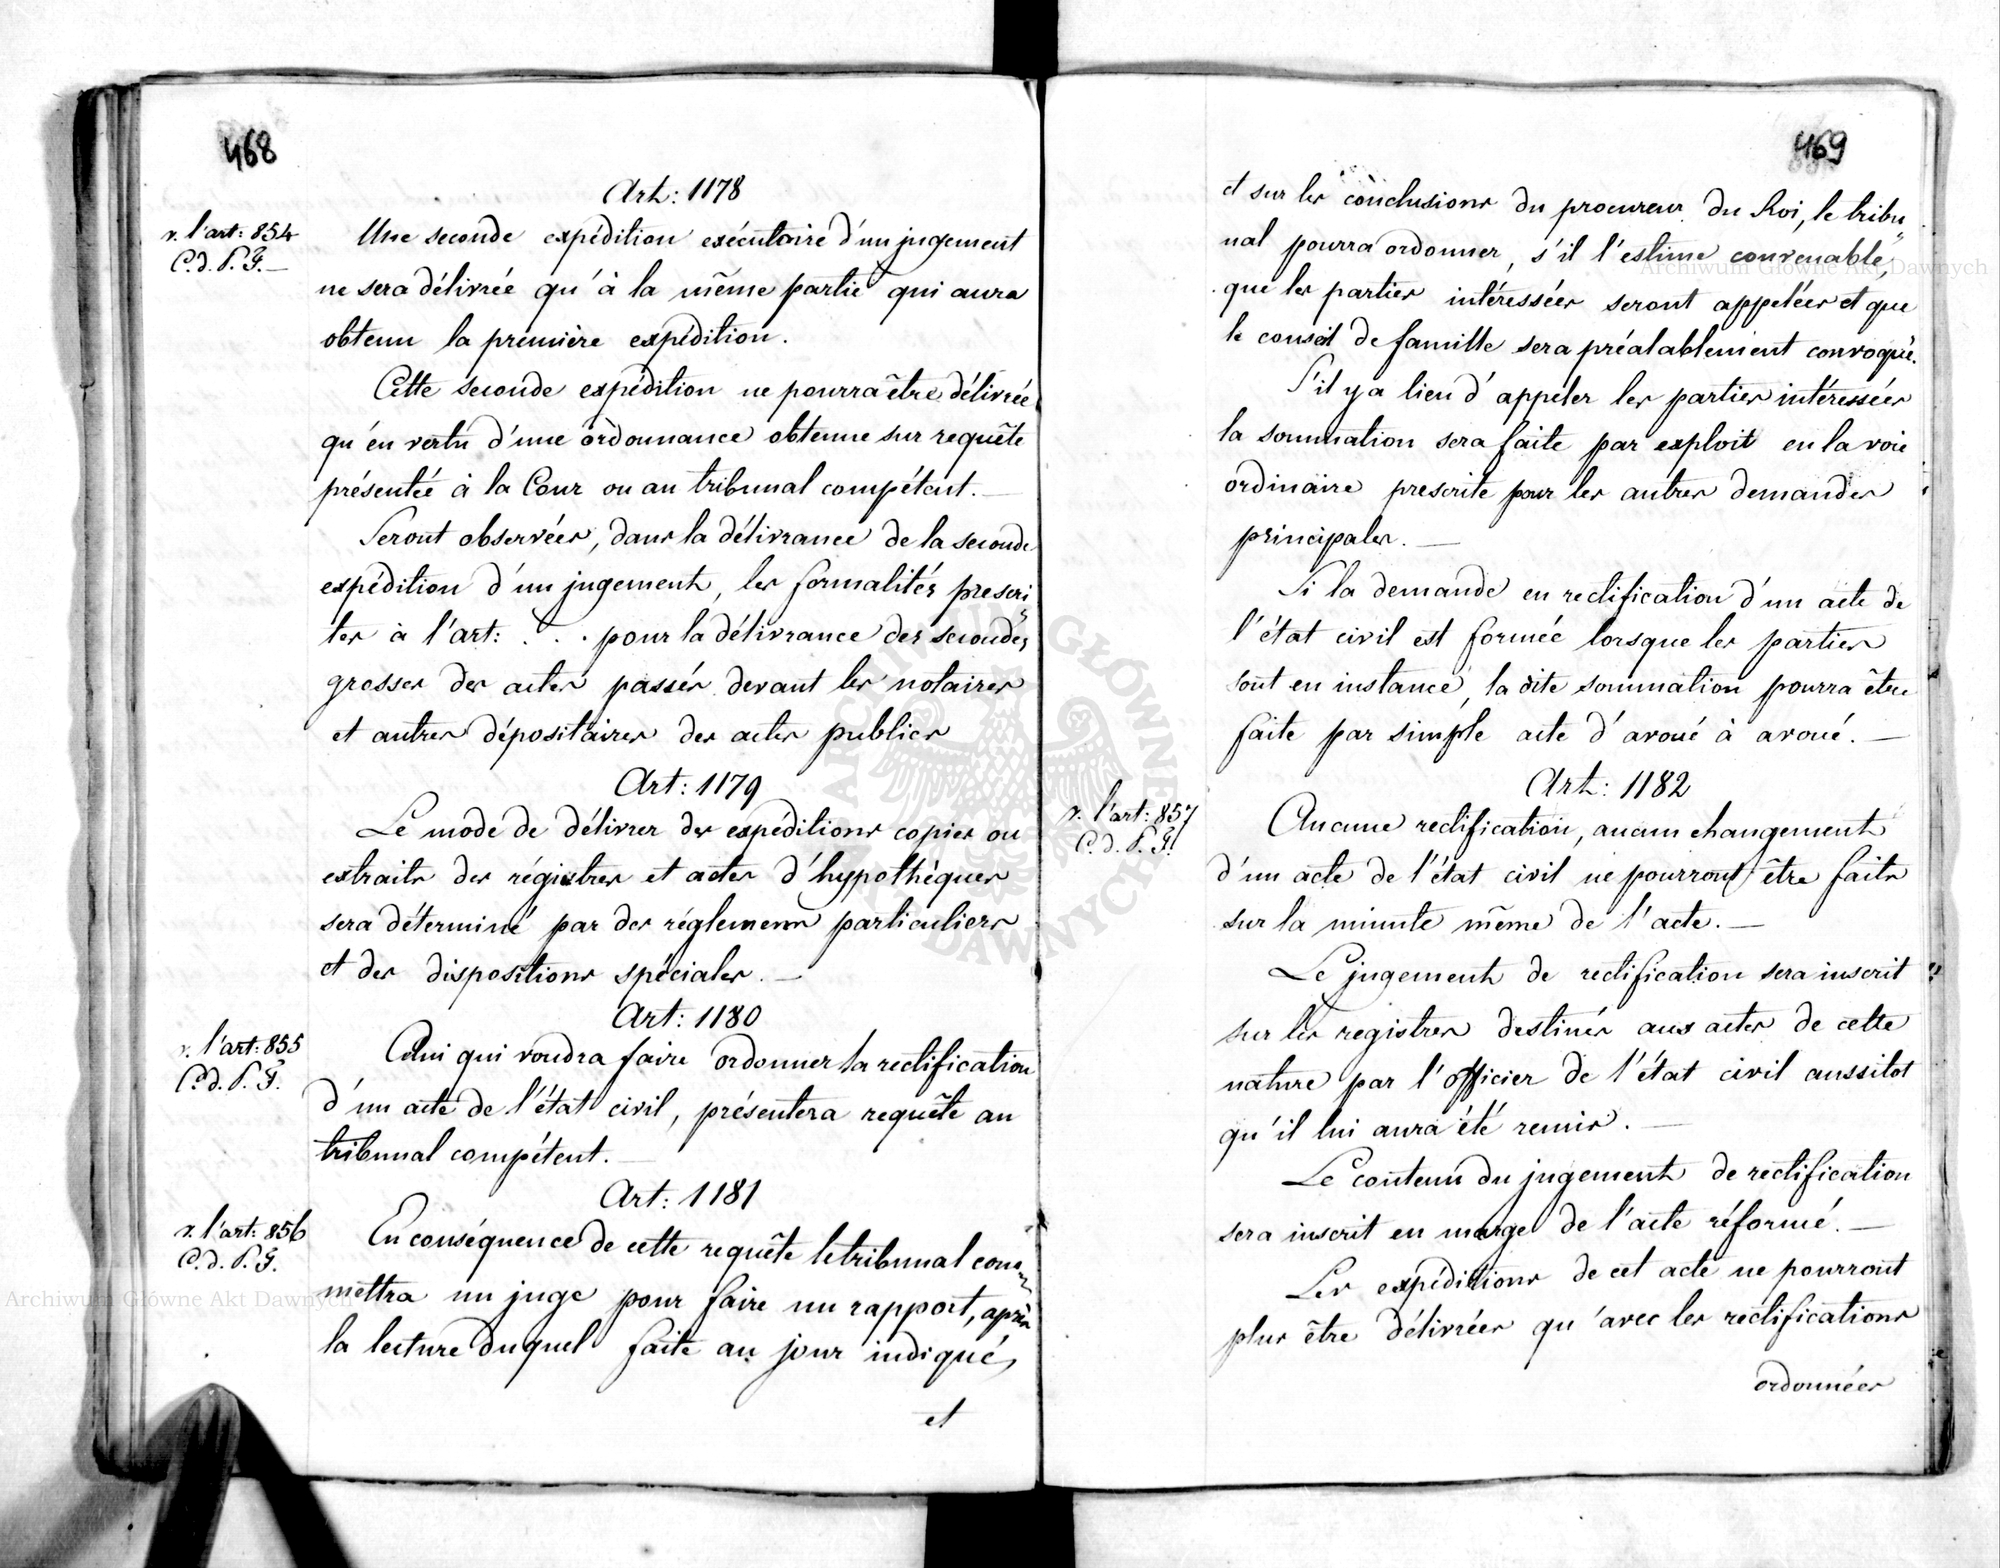 468
Art: 1178
v. l'art: 854
C. d. P. F. —
Une seconde expédition exécutoire d'un jugement
ne sera délivrée qu'à la même partie qui aura
obtenu la première expédition.
Cette seconde expédition ne pourra être délivrée
qu'en vertu d'une ordonnance obtenue sur requête
présentée à la Cour ou au tribunal compétent. —
Seront observées, dans la délivrance de la seconde
expédition d'un jugement, les formalités prescri
tes à l'art: . . . pour la délivrance des secondes
grosses des actes passés devant les notaires
et autres dépositaires des actes publics
Art: 1179
Le mode de délivrer des expéditions copies ou
extraits des régistres et actes d'hypothéques
sera déterminé par des réglemens particuliers
et des dispositions spéciales. —
Art: 1180
v. l'art: 855
C. d. P. F.
Celui qui voudra faire ordonner la rectification
d'un acte de l'état civil, présentera requête au
tribunal compétent. —
Art: 1181
v. l'art: 856
C. d. P. F.
En conséquence de cette requête le tribunal com=
mettra un juge pour faire un rapport, après
la lecture duquel faite au jour indiqué,
et
469
et sur les conclusions du procureur du Roi, le tribu„
nal pourra ordonner, s'il l'estime convenable,
que les parties intéressées seront appelées et que
le conseil de famille sera préalablement convoqué.
S'il y a lieu d'appeler les parties intéressées
la sommation sera faite par exploit en la voie
ordinaire prescrite pour les autres demandes
principales. —
Si la demande en rectification d'un acte de
l'état civil est formée lorsque les parties
sont en instance, la dite sommation pourra être
faite par simple acte d'avoué à avoué. —
Art: 1182
v. l'art: 857
C. d. P. F.
Aucune rectification, aucun changement
d'un acte de l'état civil ne pourront être faits
sur la minute même de l'acte. —
Le jugement de rectification sera inscrit
sur les registres destinés aux actes de cette
nature par l'officier de l'état civil aussitot
qu'il lui aura été remis. —
Le contenu du jugement de rectification
sera inscrit en marge de l'acte réformé. —
Les expéditions de cet acte ne pourront
plus être délivrées qu'avec les rectifications
ordonnées
Archiwum Główne Akt Dawnych
Archiwum Główne Akt Dawnych
ARCHIWUM GŁÓWNE AKT DAWNYCH